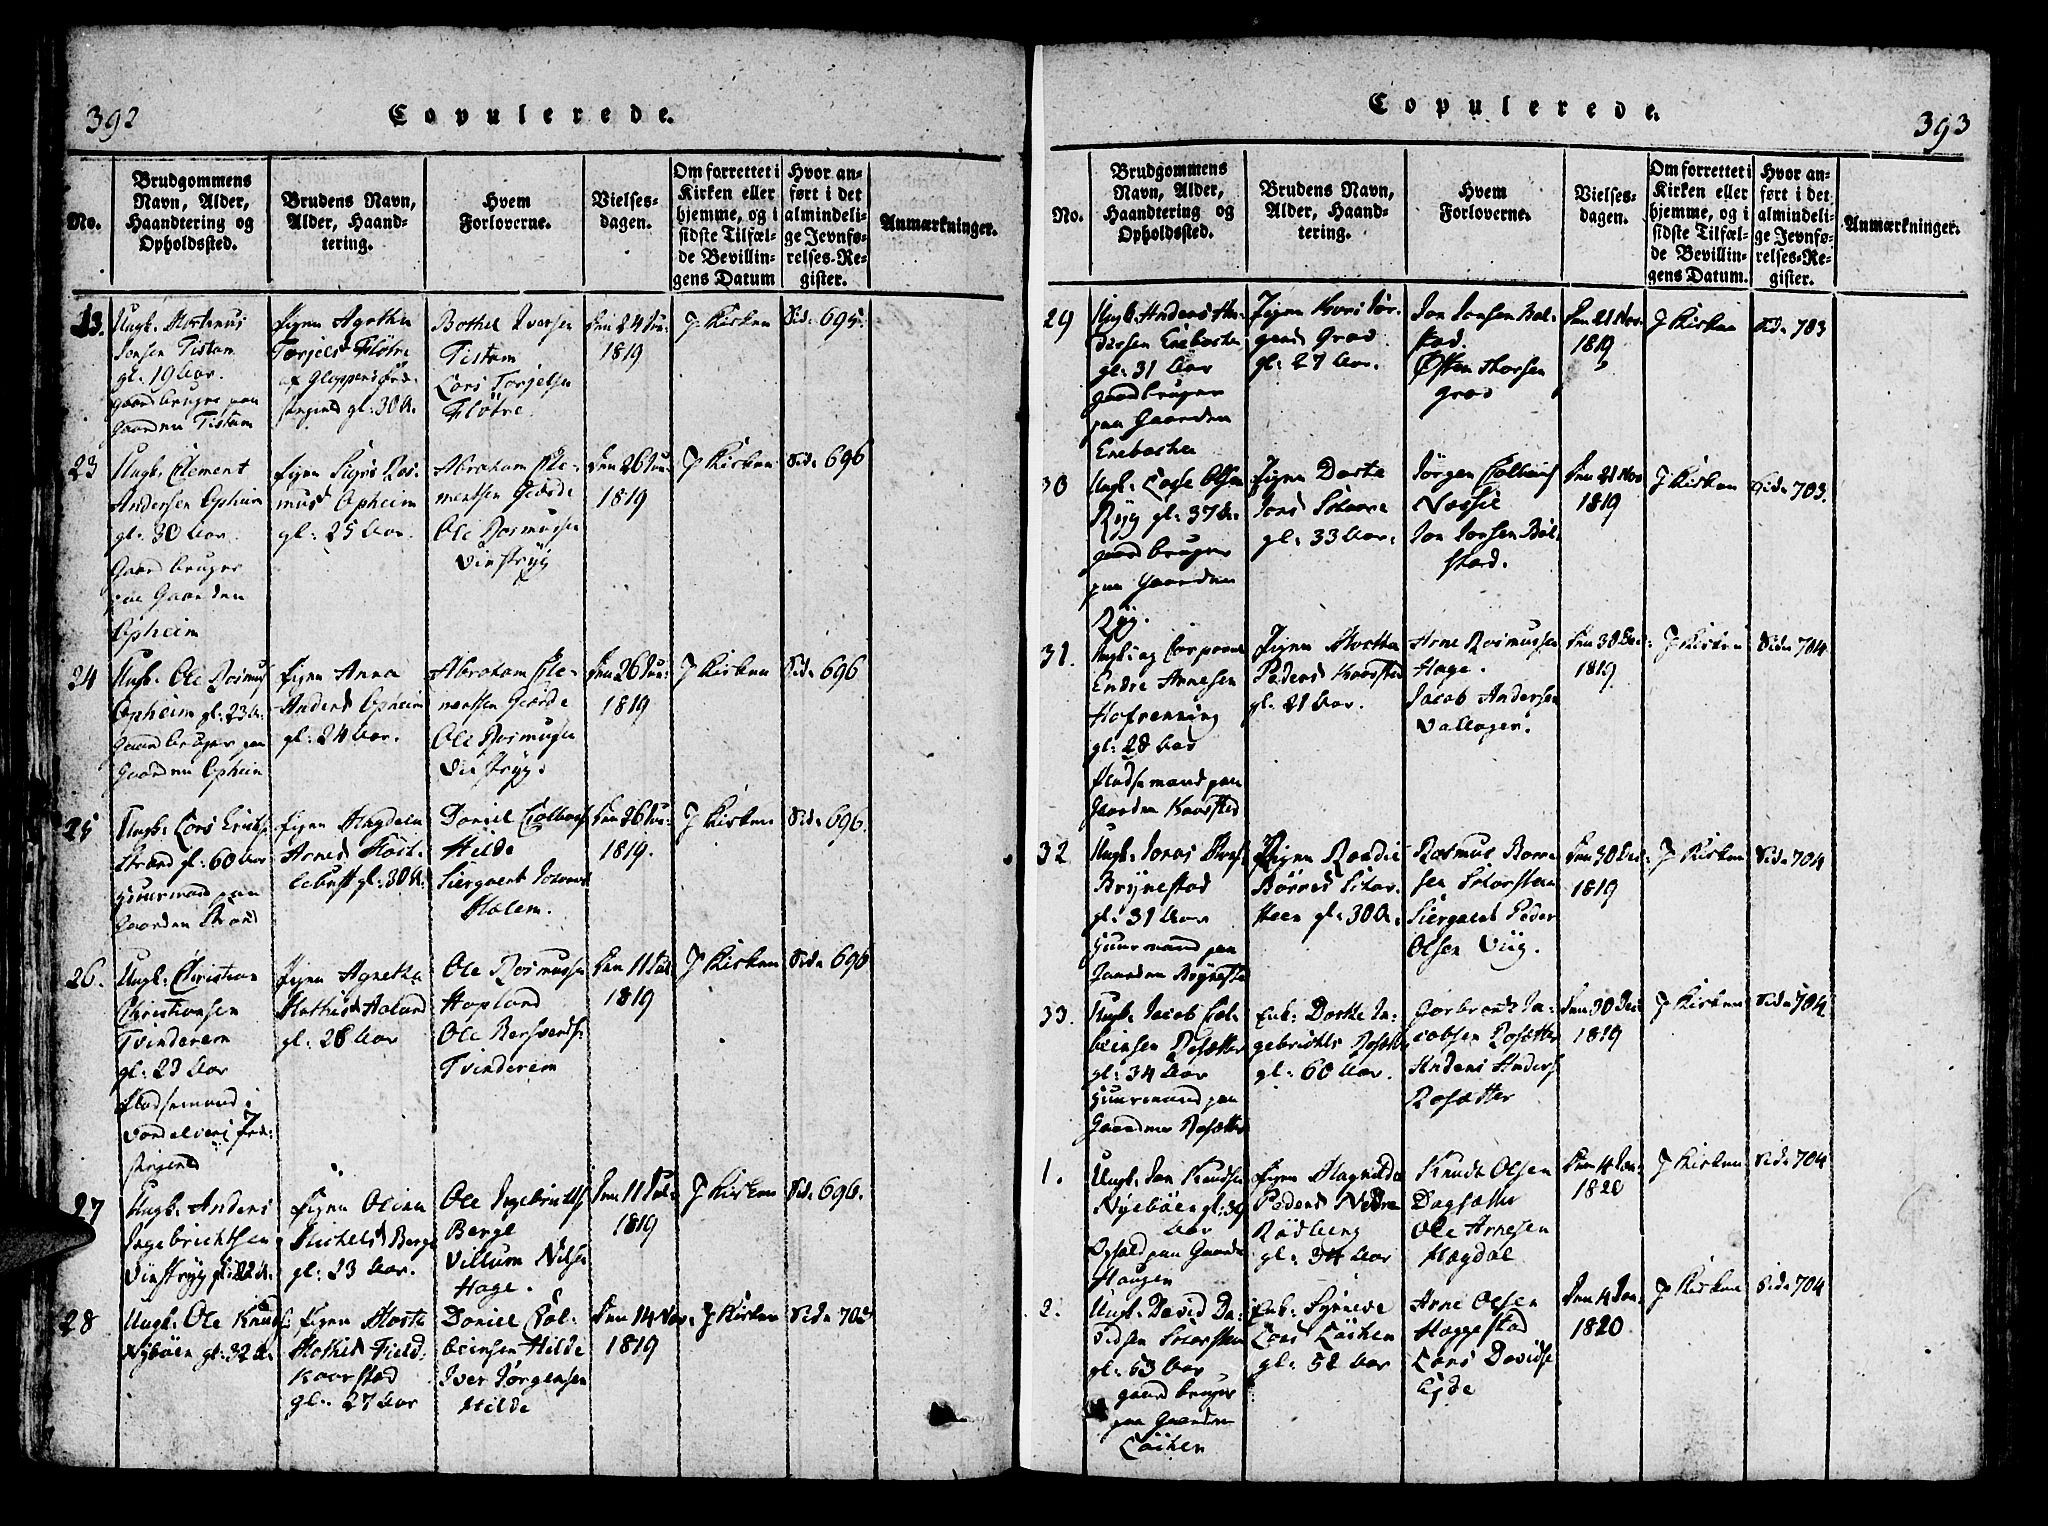 392
Copulerede.
No.
Brudgommens
Navn, Alder,
Haandtering og
Opholdssted.
Brudens Navn,
Alder, Haand-
tering.
Hvem
Forloverne.
Vielses-
dagen.
Om forrettet i
Kirken eller
hjemme, og i
sidste Tilfæl-
de Bevillin-
gens Datum
Hvor an-
ført i det
almindeli-
ge Jevnfø-
relses-Re-
gister.
Anmærkninger.
Ungk. Mortinus
Jonsen Tistam
gl: 19 Aar.
Gaardbruger paa
Gaarden Tistam
Pigen Agatha
Torjelsd. Fløtre
af Gloppens Præ-
stegield gl: 30 A.
Bottel Iversen
Tistam
Lars Torjelsen
Fløtre.
den 24 Jun:
1819
J Kirken
Sid: 695.
23
Ungk. Clement
Andersen Opheim
gl: 30 Aar.
Gaardbruger
paa Gaarden
Opheim
Pigen Sigris Ras-
musd Opheim
gl: 25 Aar.
Abraham Cle-
mentsen Gierde
Ole Rasmussen
Vinstryg
den 26 Jun:
1819
J Kirken
Sid: 696
24
Ungk. Ole Rasmus
Opheim gl: 23 A.
Gaardbruger paa
Gaarden Opheim
Pigen Anna
Andersd Opheim
gl: 24 Aar.
Abraham Cle-
mentsen Gierde
Ole Rasmusen
Vinstryg.
den 26 Jun:
1819
J Kirken
Sid: 696
25
Ungk. Lars Eriks.
Strand gl: 60 Aar
Huusmand paa
Gaarden Strand
Pigen Magdela
Arnesd
gl: 30 A.
Daniel Colbens
Hilde
Siergant
Holem.
den 26 Jun:
1819.
J Kirken
Sid: 696.
26.
Ungk. Christian
Christiansen
Tvinderem
gl: 29 Aar
Pladsemand i
Vordelvens Præ-
stegield
Pigen Agnetha
Mathisd Aaland
gl: 28 Aar
Ole Rasmusen
Hopland
Ole Bersvends.
Tvinderem
den 11 Jul:
1819
J Kirken
Sid: 696
27
Ungk. Anders
Ingebrichtsen
Vinstryg gl: 22 A.
Pigen Olina
Michelsd Berge
gl: 23 Aar.
Ole Ingebricts.
Berge
Villum Nilsen
Hage.
den 11 Jul:
1819
J Kirken
Sid: 696.
28
Ungk. Ole Knuds:
Nybøen gl: 32 A.
Pigen Marte
Mathisd Field-
Kaarstad
gl: 27 Aar
Daniel Col-
beinsen Hilde
Iver Jørgensen
Hilde
den 14 Nov.
1819
J Kirken
Sid: 702
Copulerede.
393
No.
Brudgommens
Navn, Alder,
Haandtering og
Opholdssted.
Brudens Navn,
Alder, Haand-
tering.
Hvem
Forloverne.
Vielses-
dagen.
Om forrettet i
Kirken eller
hjemme, og i
sidste Tilfæl-
de Bevillin-
gens Datum.
Hvor an-
ført i det
almindeli-
ge Jevnfø-
relses-Re-
gister.
Anmærkninger.
29
Ungk. Anders An-
dersen Enebache
gl: 31 Aar
Gaardbruger
paa Gaarden
Enebache
Pigen Kari Jør-
gensd Grov.
gl: 27 Aar.
Jon Jonsen Bol-
stad.
Østen Thorsen
Grov
den 21 Nov.
1819
J Kirken
Sid: 703
30
Ungk. Olsen
Ryg gl: 37 A.
Gaardbruger
paa Gaarden
Ryg.
Pigen Dorte
Jons
gl: 33 Aar.
Jørgen Colbens
Vassie
Jon Jonsen Bol-
stad.
den 21 Nov
1819
J Kirken
Sid: 703.
31.
Endre Arnesen
Hafrenning
gl: 28 Aar
Pladsemand paa
Gaarden Kaarsted
Pigen Martha
Pedersd Kaarsted
gl: 21 Aar.
Arne Rasmussen
Hage.
Jacob Andersen
Vallager.
den 30 Dec:
1819
J Kirken
Sid: 704
32
Ungk. Jonas
Brynestad
gl: 31 Aar
Huusmand paa
Gaarden Brynestad
Pigen Randie
Børresd Stor-
steen gl: 30 A.
Rasmus Børre-
sen Storsteen
Siergant Peder
Olsen Viig.
den 30 Dec:
1819
J Kirken
Sid: 704
33.
Ungk. Jacob Col-
beinsen Rosætter
gl: 34 Aar
Huusmand paa
Gaarden Rosætter
Enk: Dorthe In-
gebrichts Rosætter
gl: 60 Aar.
Gorbrandt Ja-
cobsen Rosætter
Anders Anders.
Rosætter
den 30 Dec
1819
J Kirken
Sid: 704
1.
Ungk. Jon Knudsen
Nyebøen gl: 39
Aar
Ophold paa Gaarden
Haugen
Pigen Magnilda
Pedersd Nedre
Rødberg
gl: 34 Aar
Knudt Olsen
Dagsætter
Ole Arnesen
Magdal
den 4 Jan:
1820
J Kirken
Sid: 704
2.
Ungk. David Da-
vidsen Storsteen
gl: 63 Aar
Gaardbruger
paa Gaarden
Løchen
Enk: Synneve
Larsd Løchen
gl: 52 Aar
Arne Olsen
Heggestad
Lars Davidsen
Eide
den 4 Jan:
1820
J Kirken
Sid: 704